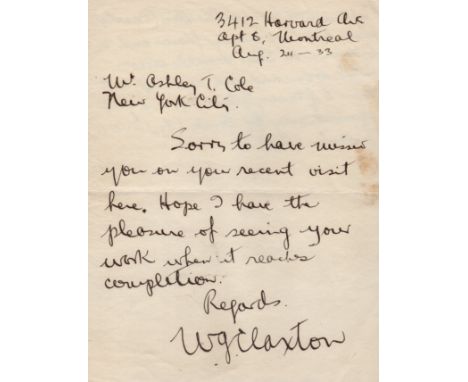 3412 Harvard Ave
Apt 8, Montreal
Aug. 24 – 33
Mr. Ashley T. Cole
New York City.
Sorry to have missed
you on you recent visit
here. Hope I have the
pleasure of seeing your
work when it reaches
completion.
Regards.
W.G. Claxton